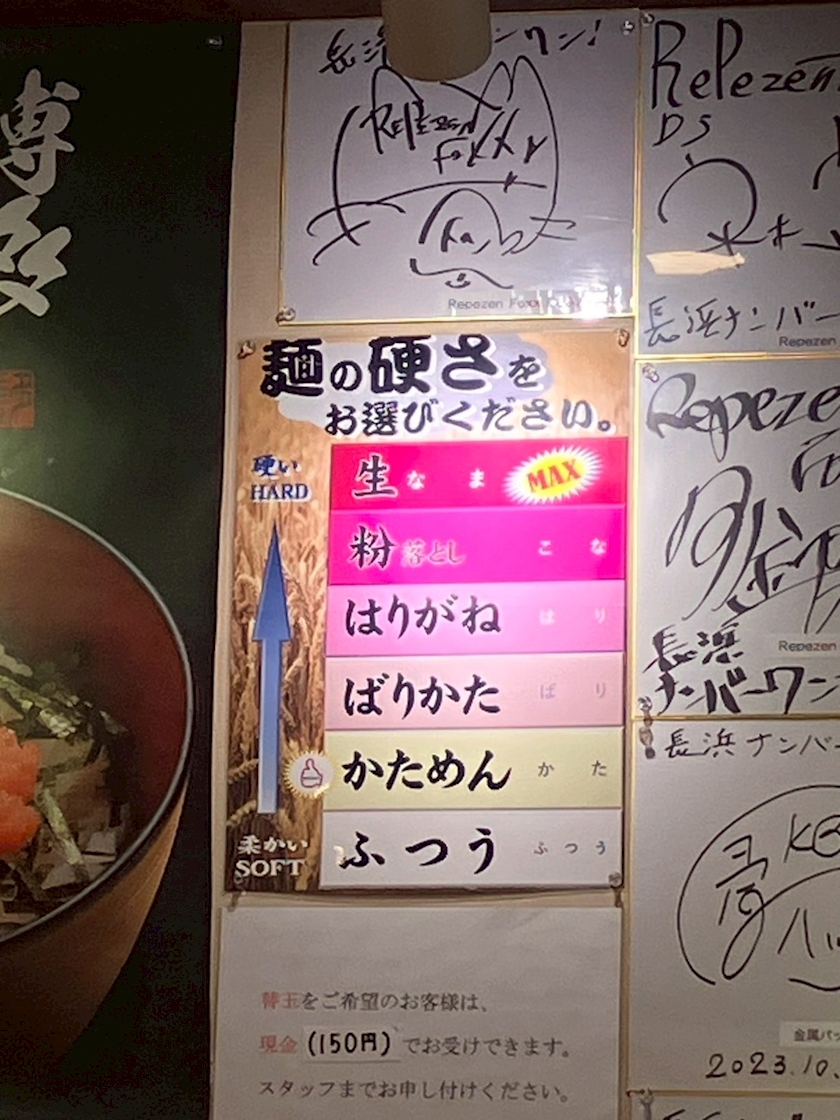 博多
Repezen
Foxx
Repezen Foxx
Repezen
DS
長浜ナンバー
Repezen
麺の硬さを
お選びください。
硬い
HARD
生 なま MAX
粉落とし こな
はりがね はり
ばりかた ばり
かためん かた
ふつう ふつう
柔かい
SOFT
Repeze
Repezen
長浜
ナンバーワン
長浜ナンバー
金属バッ
2023.10.
替玉をご希望のお客様は、
現金(150円)でお受けできます。
スタッフまでお申し付けください。